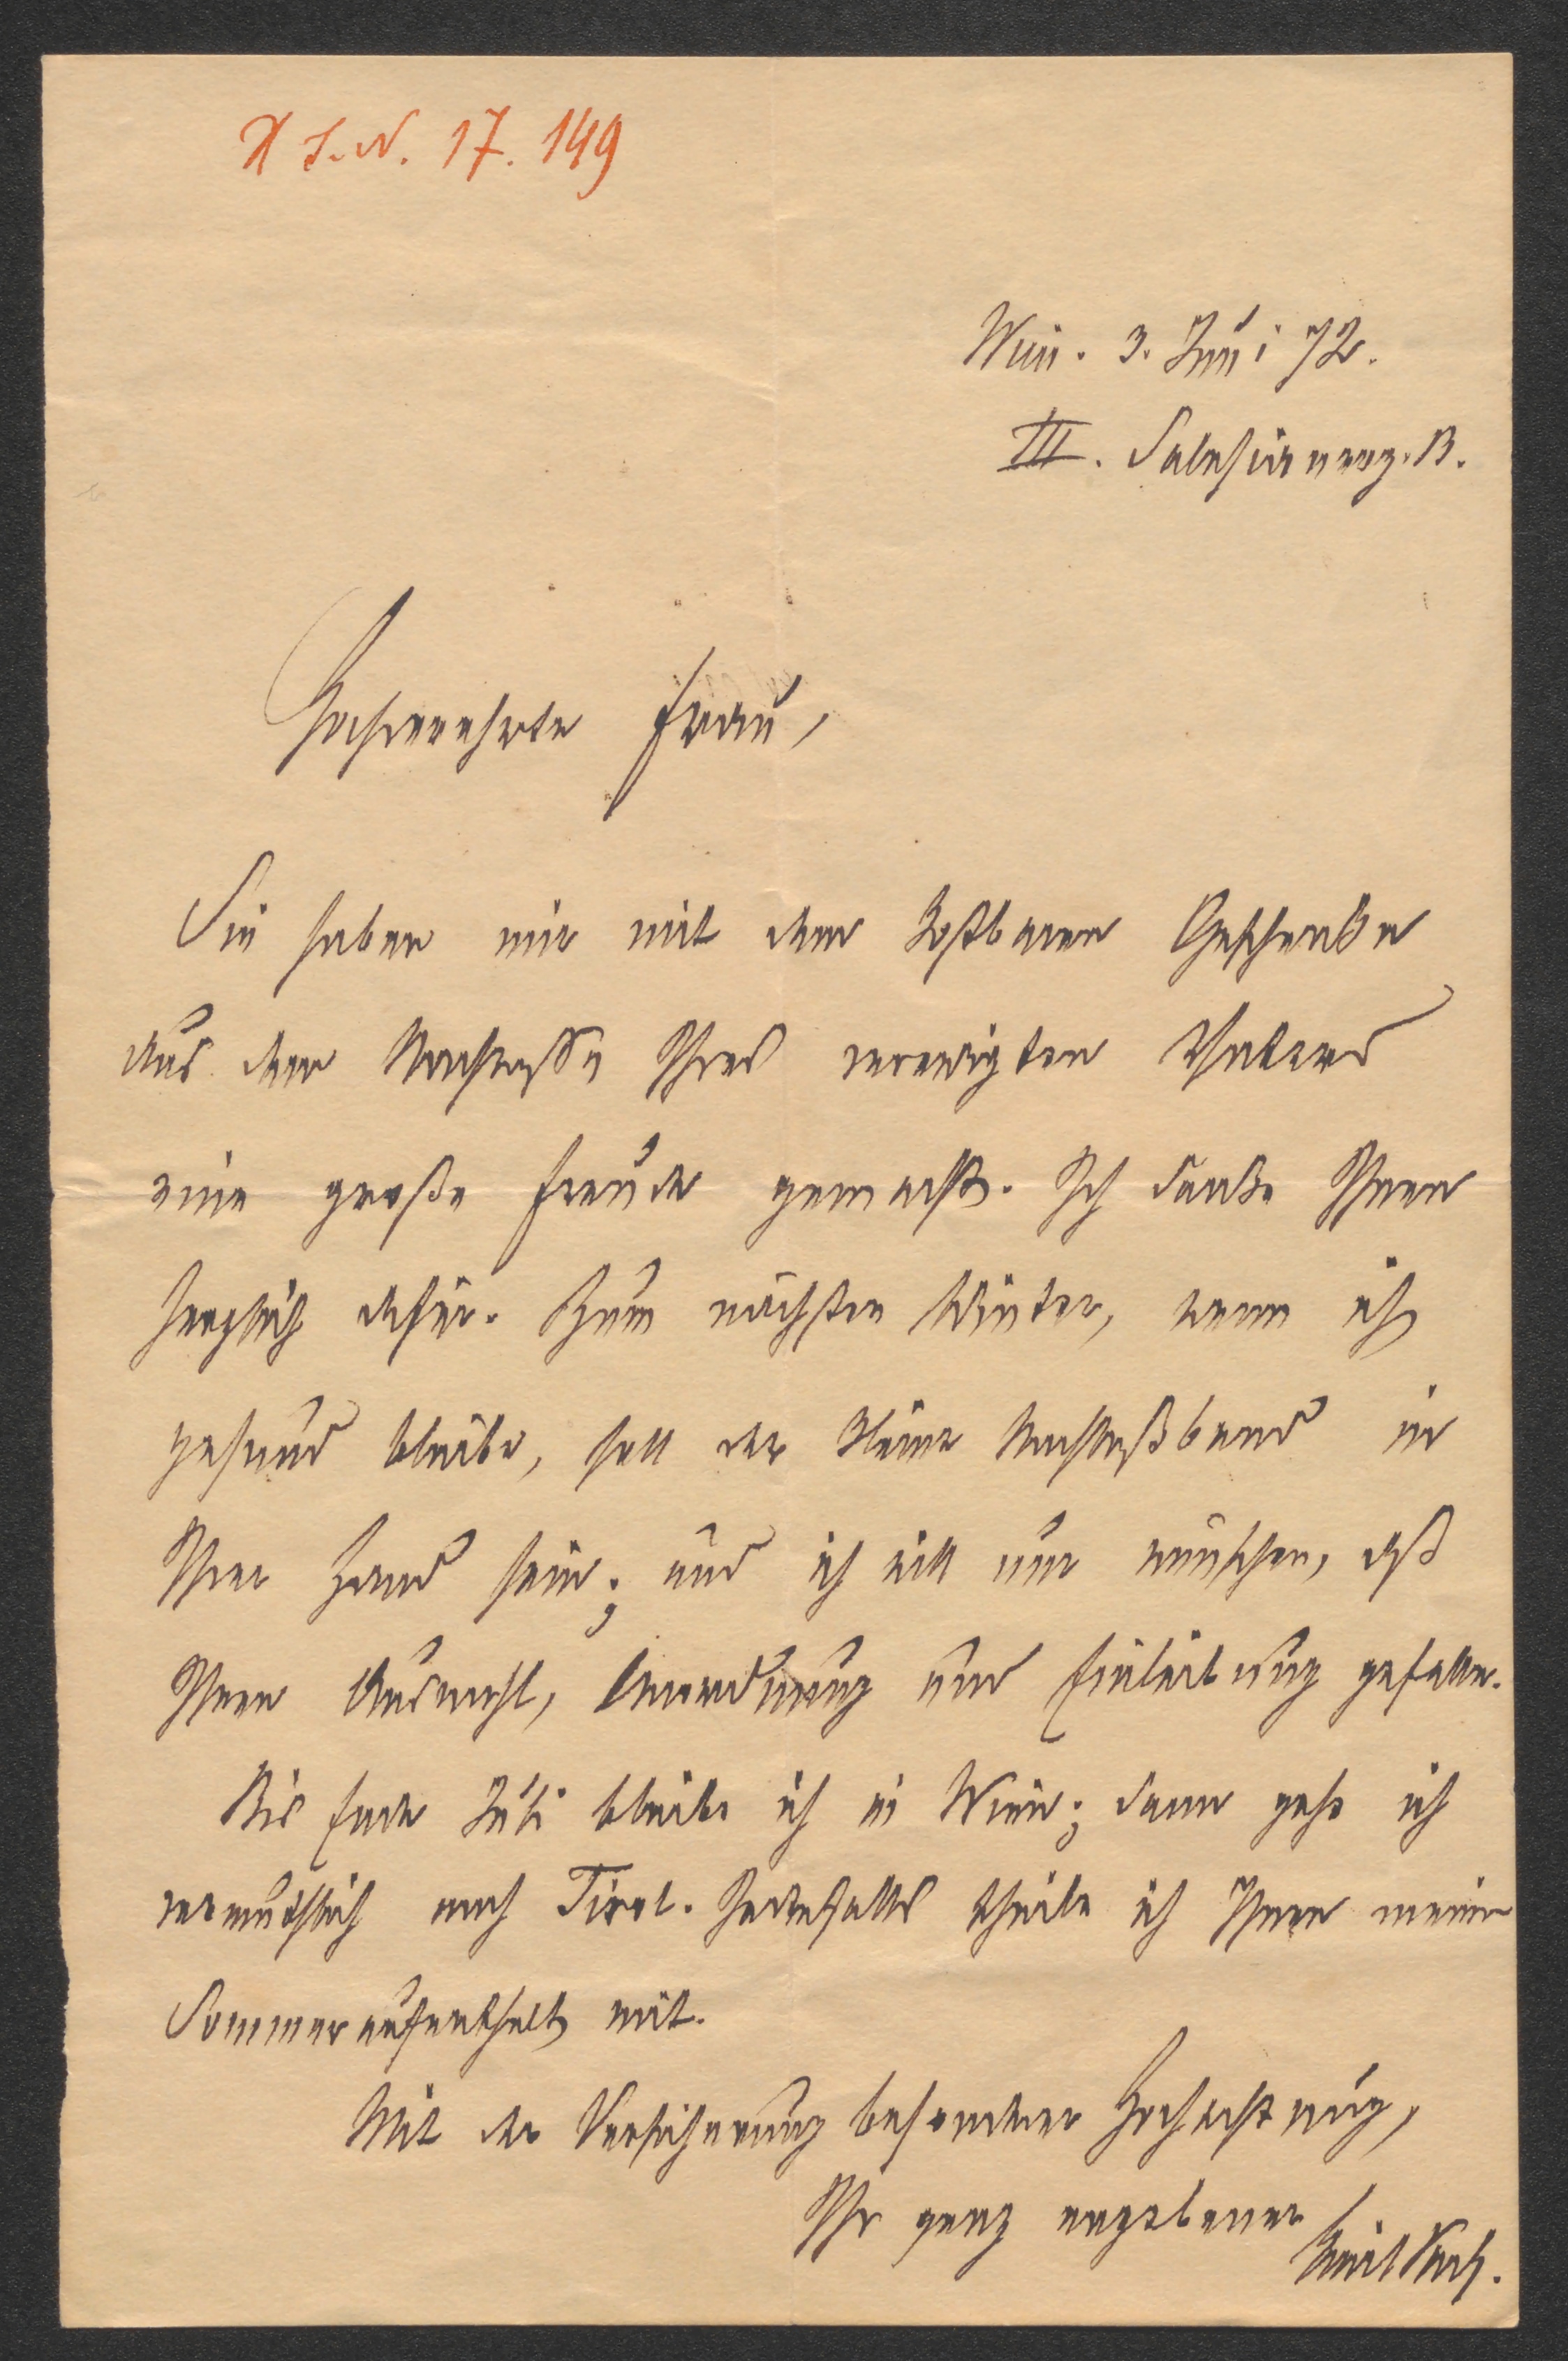 I. N. 17. 149
Wien. 3. Juni 72.
III. Salesianerg. 13.
Hochverehrte Frau,
Sie haben mir mit dem kostbaren Geschenke
aus dem Nachlasse Ihres verewigten Vaters
eine große Freude gemacht. Ich danke Ihnen
herzlich dafür. Zum nächsten Winter, wenn ich
gesund bleibe, soll der kleine Nachlaßband in
Ihrer Hand sein; und ich will nur wünschen, daß
Ihnen Auswahl, Anordnung und Einleitung gefallen.
Bis Ende Juli bleibe ich in Wien; dann gehe ich
vermuthlich nach Tirol. Jedenfalls theile ich Ihnen meinen
Sommeraufenthalt mit.
Mit der Versicherung besonderer Hochachtung,
Ihr ganz ergebener
Emil Kuh.